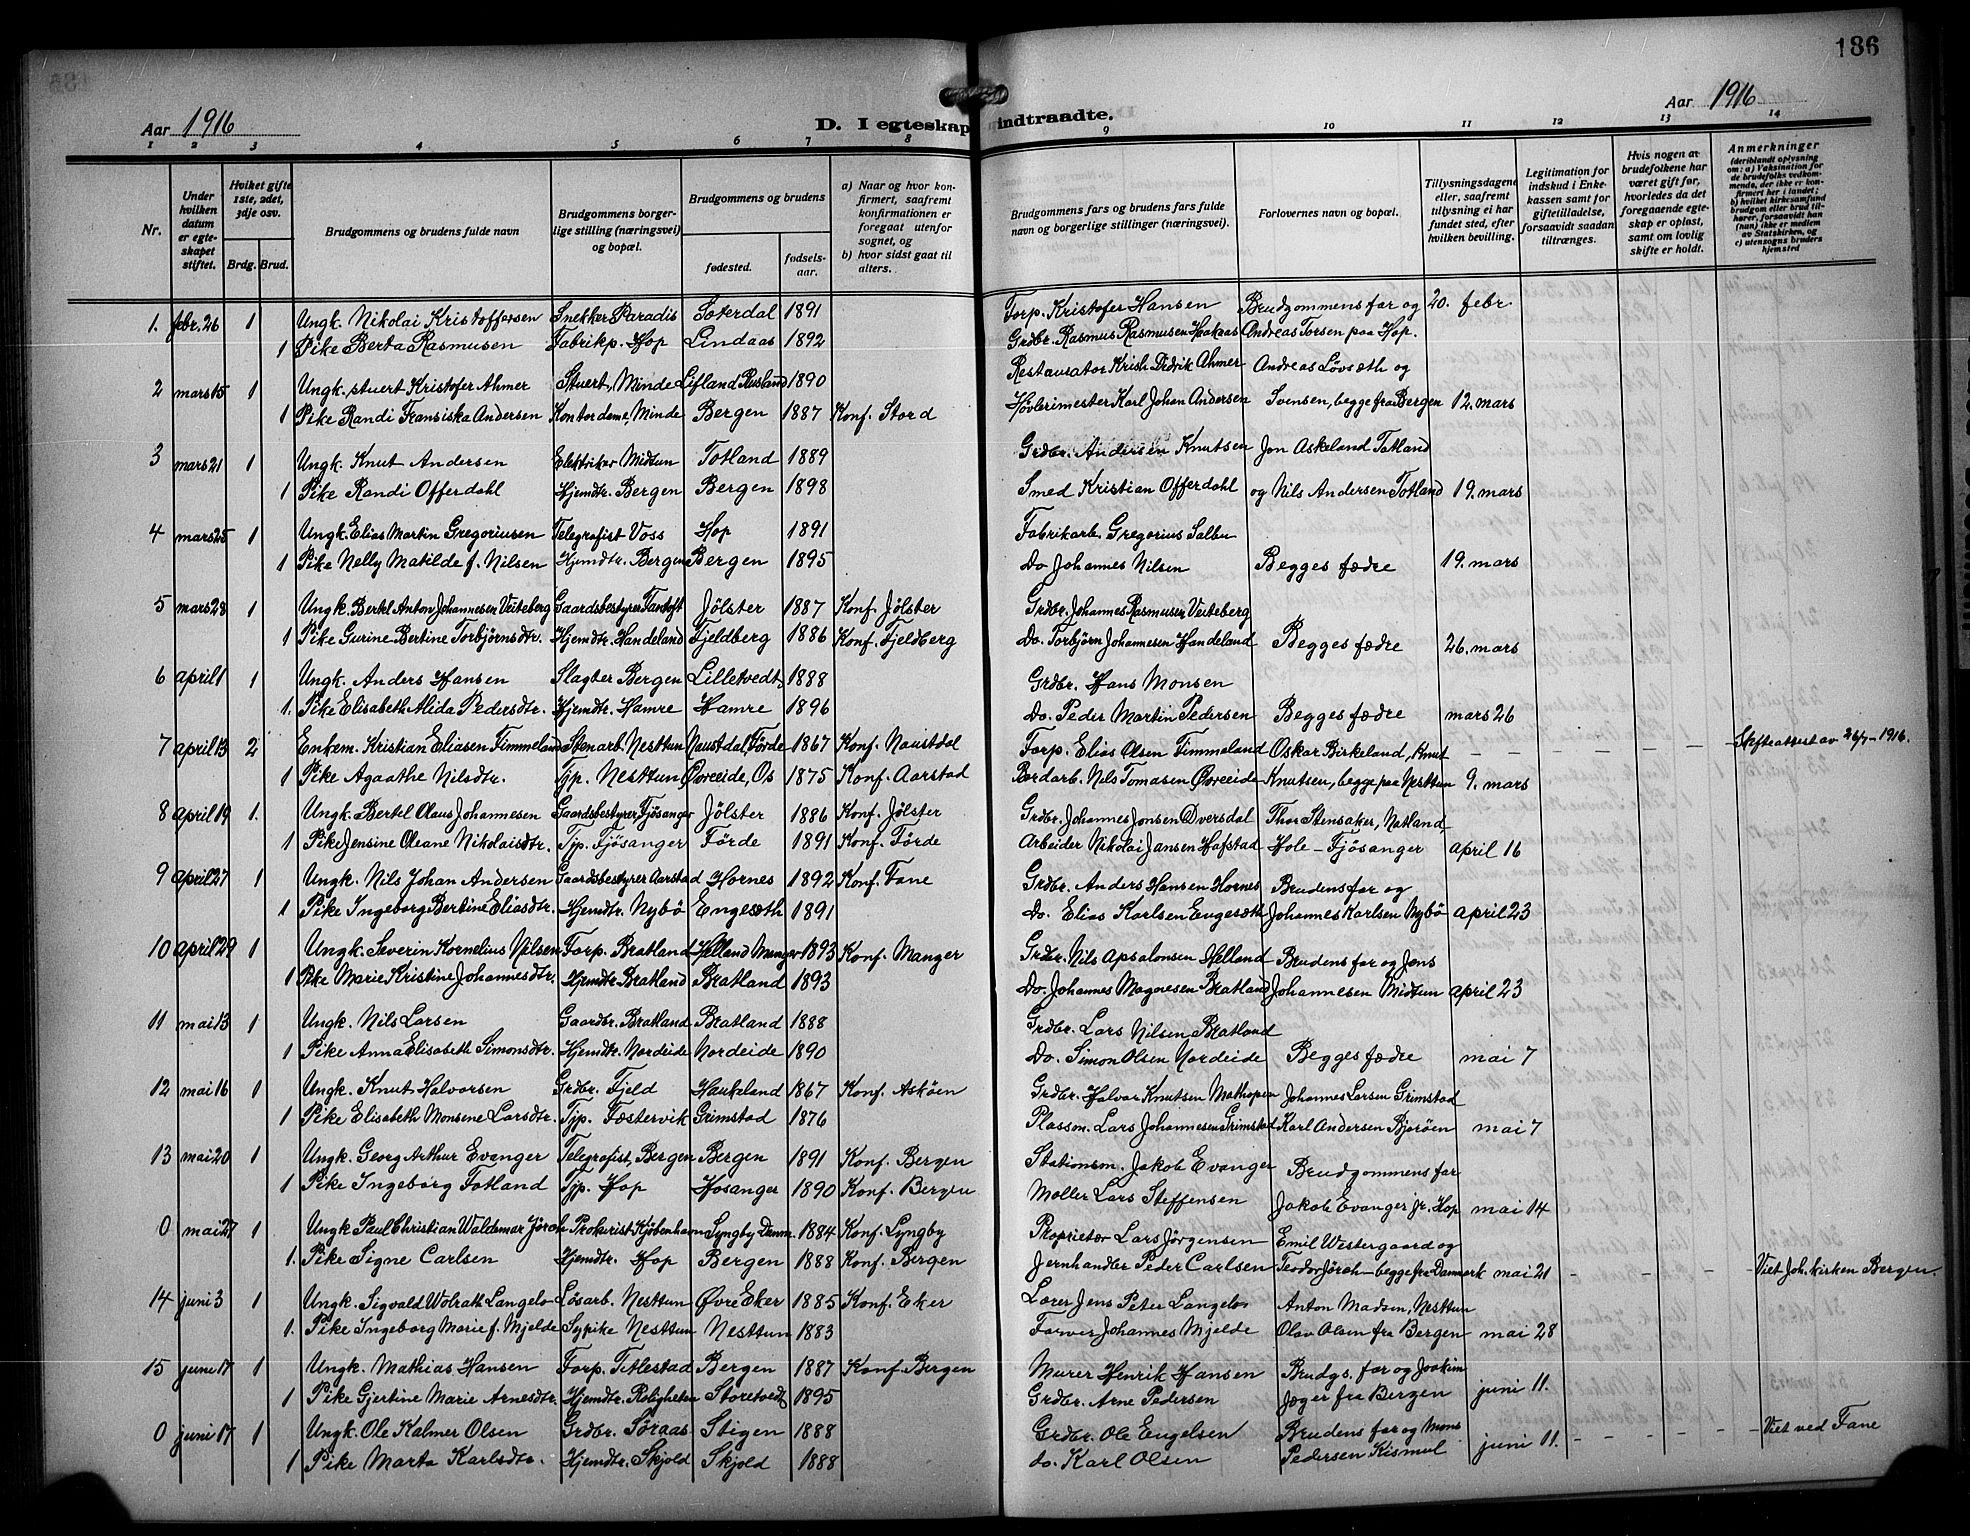 186
Aar 1916
Aar 1916
D. I egteskap indtraadte.
1 2 3 4 5 6 7 8 9 10 11 12 13 14
Nr.
Under hvilken datum er egteskapet stiftet.
Hviket gifte 1ste, 2det, 3dje osv.
Brdg. Brud.
Brudgommens og brudens fulde navn
Brudgommens borgerlige stilling (næringsvei) og bopæl.
Brudgommens og brudens
fødested.
fødselsaar.
a) Naar og hvor konfirmert, saafremt konfirmationen er foregaat utenfor sognet, og
b) hvor sidst gaat til alters.
Brudgommens fars og brudens fars fulde navn og borgerlige stillinger (næringsvei)
Forlovernes navn og bopæl.
Tillysningsdagene eller, saafremt tillysning ei har fundet sted, efter hvilken bevilling.
Legitimation for indskud i Enkekassen samt for giftetilladelse, forsaavidt saadan tiltrænges.
Hvis nogen av brudefolkene har været gift før, hvorledes da det foregaaende egteskap er opløst, samt om lovlig skifte er holdt.
Anmerkninger
(deriblandt oplysning om: a) Vaksination for de brudefolks vedkommende, der ikke er konfirmert her i landet; b) hvilket kirkesamfund brudgom eller brud tilhører, forsaavidt han (hun) ikke er medlem av Statskirken, og c) utensogns bruders hjemsted
1. febr. 26 1 Ungk. Nikolai Kristoffersen Snekker Paradis Soterdal 1891 Forp. Kristofer Hansen Brudgommens far og 20. febr.
1 Pike Berta Rasmusen Fabrikp. Hop Lindaas 1892 Grdbr. Rasmus Rasmusen Haakaas Andreas Torsen paa Hop.
2 mars 15 1 Ungk. stuert Kristofer Ahmer Stuert, Minde Lifland Rusland 1890 Restaurator Krish Didrik Ahmer Andreas Løvseth og
1 Pike Randi Fransiska Andersen Kontordame, Minde Bergen 1887 Konf. Stord Høvlerimester Karl Johan Andersen Svensen, begge fra Bergen 12. mars
3 mars 21 1 Ungk. Knut Andersen Elektriker Midtun Totland 1889 Grdbr. Andersen Knutsen Jon Askeland Totland
1 Pike Randi Offerdahl Hjemdtr. Bergen Bergen 1898 Smed Kristian Offerdahl og Nils Andersen Totland 19. mars
4 mars 25 1 Ungk. Elias Martin Gregoriusen Telegrafist Voss Hop 1891 Fabrikarb. Gregorius Salbu
1 Pike Nelly Matilde f. Nilsen Hjemdtr. Bergen Bergen 1895 Do Johannes Nilsen Begges fædre 19. mars
5 mars 28 1 Ungk. Bertel Anton Johannesen Veiteberg Gaardsbestyrer Fantoft Jølster 1887 Konf. Jølster Grdbr. Johannes Rasmusen Veiteberg
1 Pike Gurine Bertine Torbjørnsdtr. Hjemdtr. Handeland Fjeldberg 1886 Konf. Fjeldberg Do. Torbjørn Johannesen Handeland Begges fædre 26. mars
6 april 1 1 Ungk. Anders Hansen Slagter Bergen Lilletvedt 1888 Grdbr. Hans Monsen
1. Pike Elisabeth Alida Pedersdtr. Hjemdtr. Hamre Hamre 1896 Do. Peder Martin Pedersen Begges fædre mars 26
7 april 13 2 Enkem. Kristian Eliasen Timmeland Stenarb. Nesttun Naustdal, Førde 1867 Konf. Naustdal Forp. Elias Olsen Timmeland Oskar Birkeland, Knut – – – – – – Skifteattest av 26/7 – 1916.
1 Pike Agaathe Nilsdtr. Tjp. Nesttun Øvreeide, Os 1875 Konf. Aarstad Bordarb. Nils Tomasen Øvreeide Knutsen, begge paa Nesttun 9. mars
8 april 19 1. Ungk. Bertel Olaus Johannesen Gaardsbestyrer, Fjøsanger Jølster 1886 Konf. Jølster Grdbr. Johannes Jonsen Dversdal Thor Stensaker, Natland
1 Pike Jensine Oleane Nikolaisdtr. Tjp. Fjøsanger Førde 1891 Konf. Førde Arbeider Nikolai Jansen Hafstad Hole – Fjøsanger april 16
9 april 27 1 Ungk. Nils Johan Andersen Gaardsbestyrer Aarstad Hornes 1892 Konf. Fane Grdbr. Anders Hansen Hornes Brudens far og
1 Pike Ingeborg Bertine Eliasdtr. Hjemdtr. Nybø Engeseth 1891 Do. Elias Karlsen Engeseth Johannes Karlsen Nybø april 23
10 april 29 1 Ungk. Severin Kornelius Nilsen Forp. Bratland Helland Manger 1893 Konf. Manger Grdbr. Nils Apsalonsen Helland Brudens far og Jens
1 Pike Marie Kristine Johannesdtr. Hjemdtr. Bratland Bratland 1893 Do. Johannes Magnesen Bratland Johannesen Midtun april 23
11 mai 13 1 Ungk. Nils Larsen Gaardbr. Bratland Bratland 1888 Grdbr. Lars Nilsen Bratland
1 Pike Anna Elisabeth Simonsdtr. Hjemdtr. Nordeide Nordeide 1890 Do. Simon Olsen Nordeide Begges fædre mai 7
12 mai 16 1 Ungk. Knut Halvorsen Grdbr. Fjeld Haukeland 1867 Konf. Askøen Grdbr. Halvor Knutsen Mathopen Johannes Larsen Grimstad
1 Pike Elisabeth Monsene Larsdtr. Tjp. Fæstervik Grimstad 1876 Plassm. Lars Johannesen Grimstad Karl Andersen Bjørøen mai 7
13 mai 20 1 Ungk. Georg Arthur Evanger Telegrafist, Bergen Bergen 1891 Konf. Bergen Stationsm. Jakob Evanger Brudgommens far
1 Pike Ingeborg Fotland Tjp. Hop Hosanger 1890 Konf. Bergen Møller Lars Steffensen Jakob Evanger jr. Hop mai 14
0 mai 27 1 Ungk Paul Christian Waldemar Jörch Prokurist Kjøbenhavn Lyngby Danm. 1884 Konf. Lyngby Proprietær Lars Jørgensen Emil Westergaard og
1. Pike Signe Carlsen Hjemdtr. Hop Bergen 1888 Konf. Bergen Jernhandler Peder Carlsen Teodor Jörch – begge fra Danmark mai 21 – – – – Viet Joh. kirken Bergen.
14 juni 3 1 Ungk. Sigvald Wolrath Langelo Løsarb. Nesttun Øvre Eker 1885 Konf. Eker Lærer Jens Peter Langelo Anton Madsen, Nesttun
1. Pike Ingeborg Marie f. Mjelde Sypike Nesttun Nesttun 1883 Farver Johannes Mjelde Olav Olsen fra Bergen mai 28
15 june 17 1 Ungk. Mathias Hansen Forp. Titlestad Bergen 1887 Konf. Bergen Murer Henrik Hansen Brudgs. far og Joakim
1 Pike Gjertine Marie Arnesdtr. Hjemdtr. Roligheten Storetvedt 1895 Grdbr. Arne Pedersen Jæger fra Bergen juni 11.
0 juni 17 1 Ungk. Ole Kalmer Olsen Grdbr. Søraas Stigen 1888 Grdbr. Ole Engelsen Brudens far og Mons
1 Pike Marta Karlsdtr. Hjemdtr. Skjold Skjold 1888 do. Karl Olsen Pedersen Kismul juni 11. – – – – – Viet ved Fane